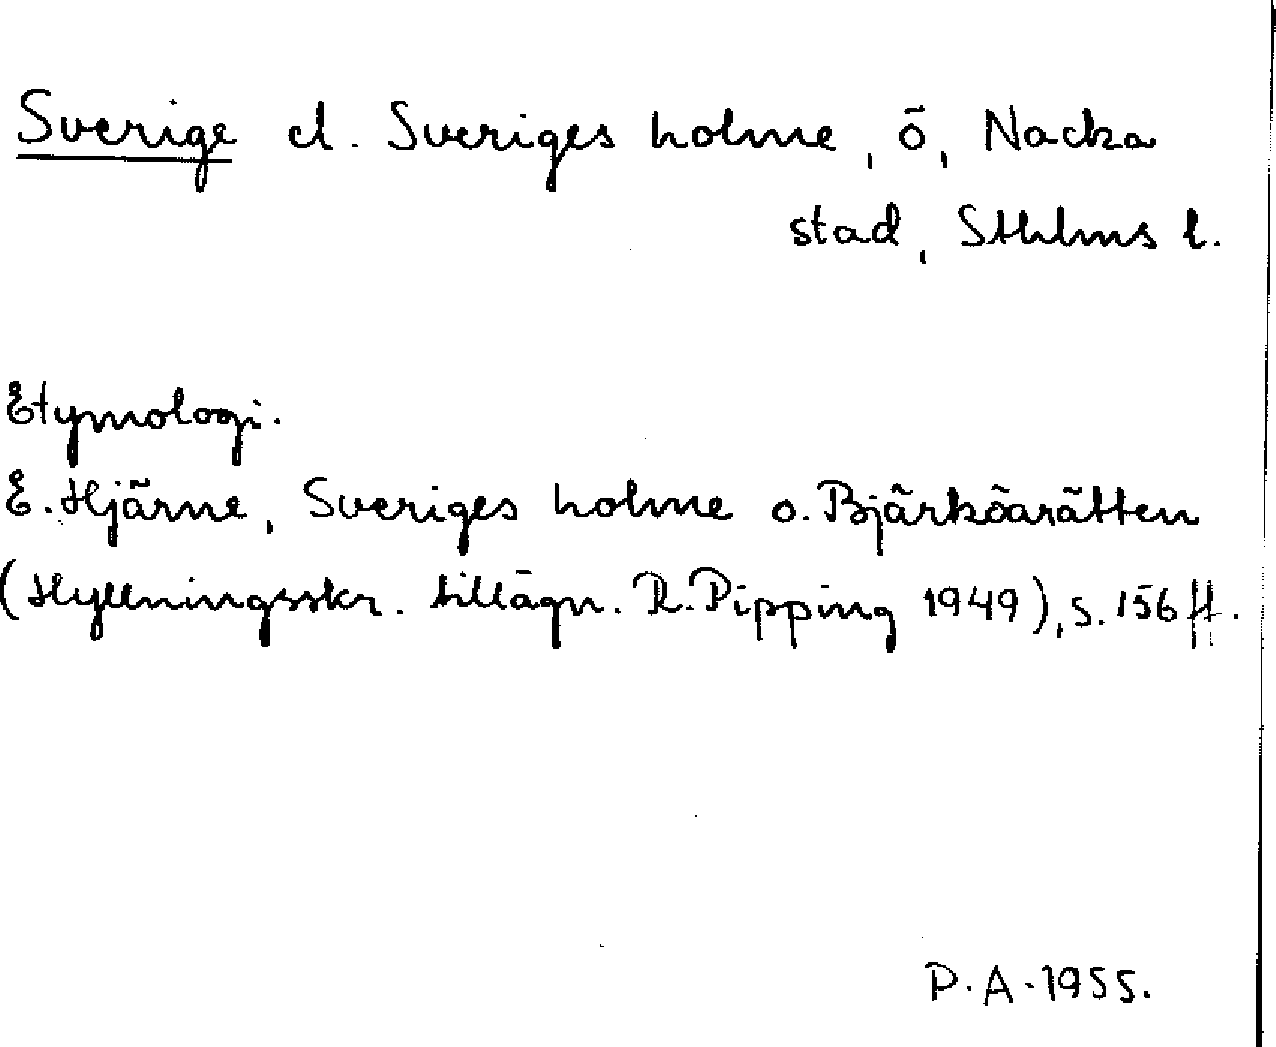 Sverige el. Sveriges holme, ö, Nacka
stad, Sthlms l.
Etymologi.
E. Hjärne, Sveriges holme o. Bjärköarätten
(Hyllningsskr. tillägn. R. Pipping 1949), s. 156 ff.
P. A. 1955.